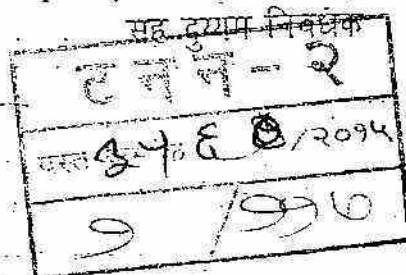 सह दुय्यम निबंधक
ट न न - २
दस्त ३५६०/२०१५
१ / ११७